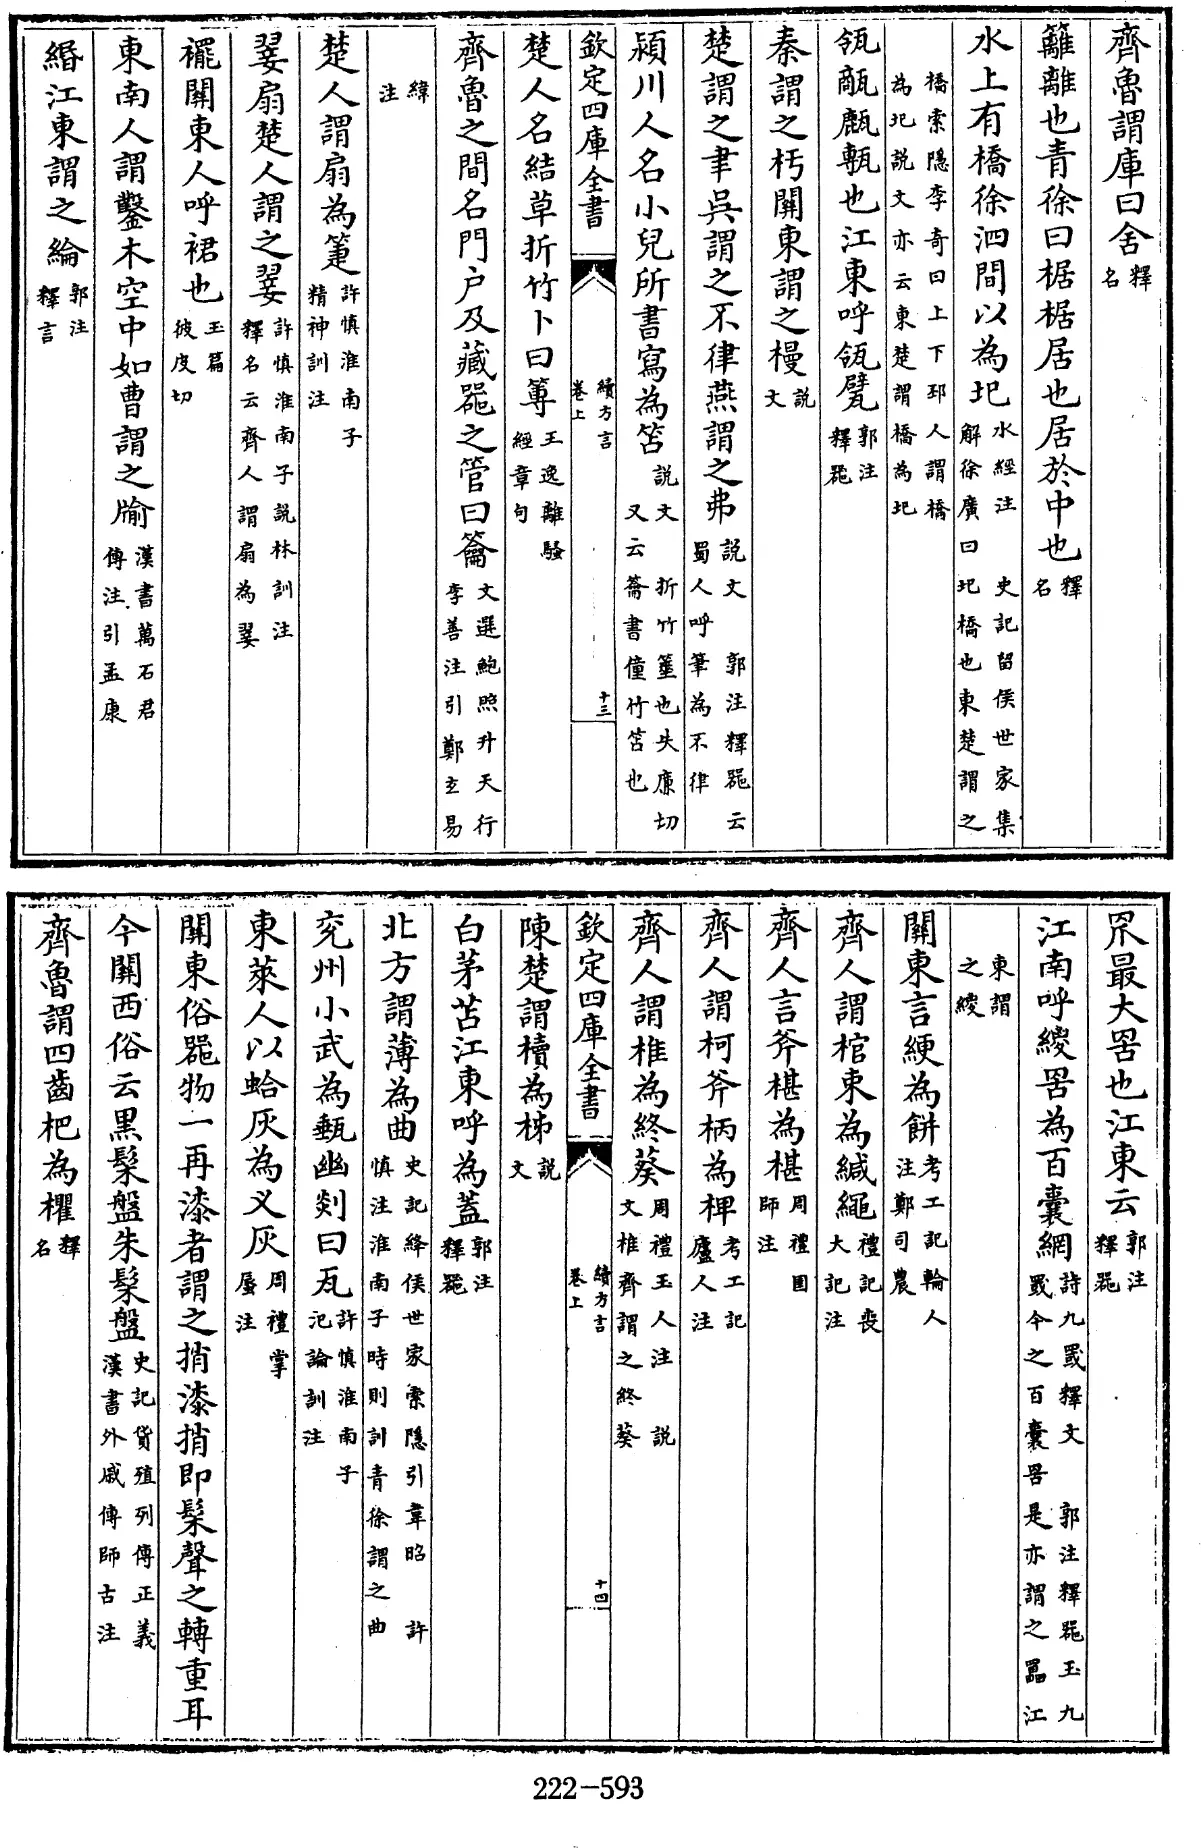 齊魯謂庫曰舍釋名
籬離也青徐曰椐椐居也居於中也釋名
水上有橋徐泗間以為圯水經注 史記留侯世家集解徐廣曰圯橋也東楚謂之
橋索隱李奇曰上下邳人謂橋為圯說文亦云東楚謂橋為圯
瓴甋㼾甎也江東呼瓴甓郭注釋器
秦謂之杇關東謂之槾說文
楚謂之聿吳謂之不律燕謂之弗說文 郭注釋器云蜀人呼筆為不律
潁川人名小兒所書寫為笘說文 折竹箠也失廉切又云籥書僮竹笘也
欽定四庫全書 續方言卷上 十三
楚人名結草折竹卜曰篿王逸離騷經章句
齊魯之間名門戶及藏器之管曰籥文選鮑照升天行李善注引鄭玄易
緯注
楚人謂扇為箑許慎淮南子精神訓注
翣扇楚人謂之翣許慎淮南子說林訓注釋名云齊人謂扇為翣
襬關東人呼裙也玉篇彼皮切
東南人謂鑿木空中如曹謂之牏漢書萬石君傳注引孟康
緡江東謂之綸郭注釋言
罛最大罟也江東云郭注釋器
江南呼緵罟為百囊網詩九罭釋文 郭注釋器玉九罭今之百囊罟是亦謂之䍡江
東謂之緵
關東言綆為餅考工記輪人注鄭司農
齊人謂棺束為緘繩禮記喪大記注
齊人言斧椹為椹周禮圉師注
齊人謂柯斧柄為椑考工記廬人注
齊人謂椎為終葵周禮玉人注 說文椎齊謂之終葵
欽定四庫全書 續方言卷上 十四
陳楚謂櫝為柹說文
白茅苫江東呼為蓋郭注釋器
北方謂薄為曲史記絳侯世家索隱引韋昭 許慎注淮南子時則訓青徐謂之曲
兖州小武為㼽幽剡曰瓦許慎淮南子氾論訓注
東萊人以蛤灰為义灰周禮掌蜃注
關東俗器物一再漆者謂之捎漆捎即髤聲之轉重耳
今關西俗云黑髤盤朱髤盤史記貨殖列傳正義漢書外戚傳師古注
齊魯謂四齒杷為欋釋名
222-593